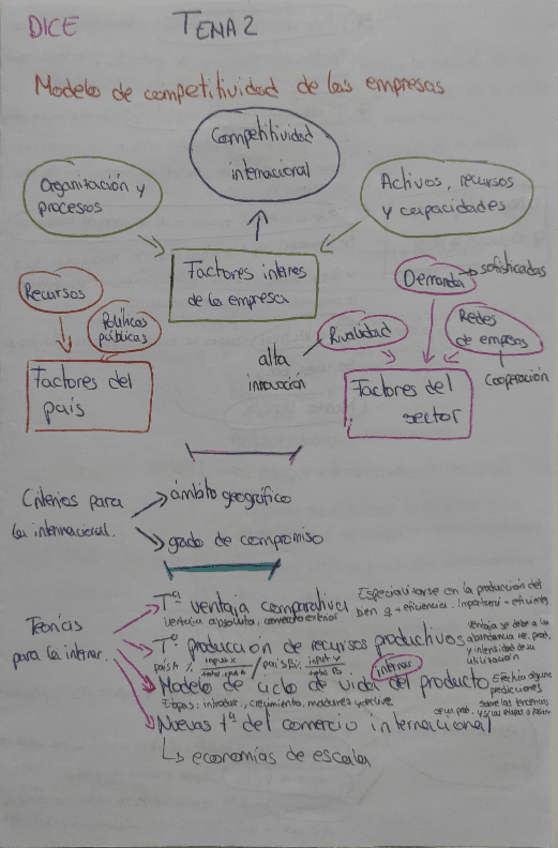 DICE TEMA 2
Modelo de competitividad de las empresas
Competitividad
internacional
Organización y
procesos
Activos, recursos
y capacidades
Factores internos
de la empresa
Recursos
Políticas
públicas
Factores del
país
Demanda
sofisticadas
Rivalidad
alta
innovación
Redes
de empresas
Cooperación
Factores del
sector
Criterios para
la internacional.
ámbito geográfico
grado de compromiso
Teorías
para la internac.
Tª ventaja comparativa
ventaja absoluta, comercio exterior
Especializarse en la producción del
bien q + eficiencia. Importar - eficientes
Tª producción de recursos productivos
país A % input x / país B % input y
total inp A total B
ventaja se debe a la
abundancia rec. prod.
y intensidad de su
utilización
internac
Modelo de ciclo de vida del producto
Etapas: introduc., crecimiento, madurez y declive
Efectúa algunas
predicciones
sobre las
Nuevas tª del comercio internacional
economías de escala